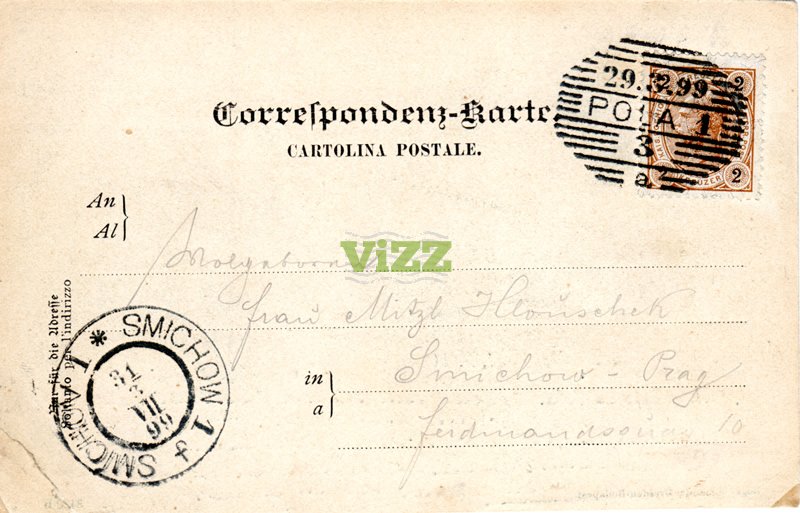 Correspondenz-Karte.
CARTOLINA POSTALE.
29.3.99
POLA 1
3
a
2 2
KREUZER 2
An
Al
ViZZ
Wolgeborne
Frau Mitzl Hlouschek
in
a
Smichow - Prag
Ferdinandsquai 10
Nur für die Adresse
Soltanto per l'indirizzo
* SMICHOW 1 f
SMÍCHOV 1
31
3
VII
99